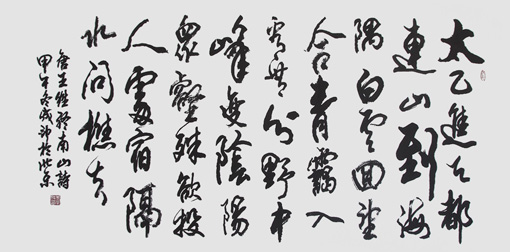 太乙進都
連山到海
隅白雲回望
合青靄入
看無分野中
峰變陰陽
衆壑殊欲投
人處宿隔
水問樵夫
王維終南山詩
甲午冬成於北京